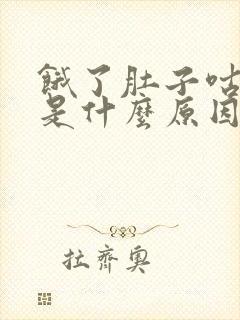 餓了肚子咕
是什麼原因
拉齊奧